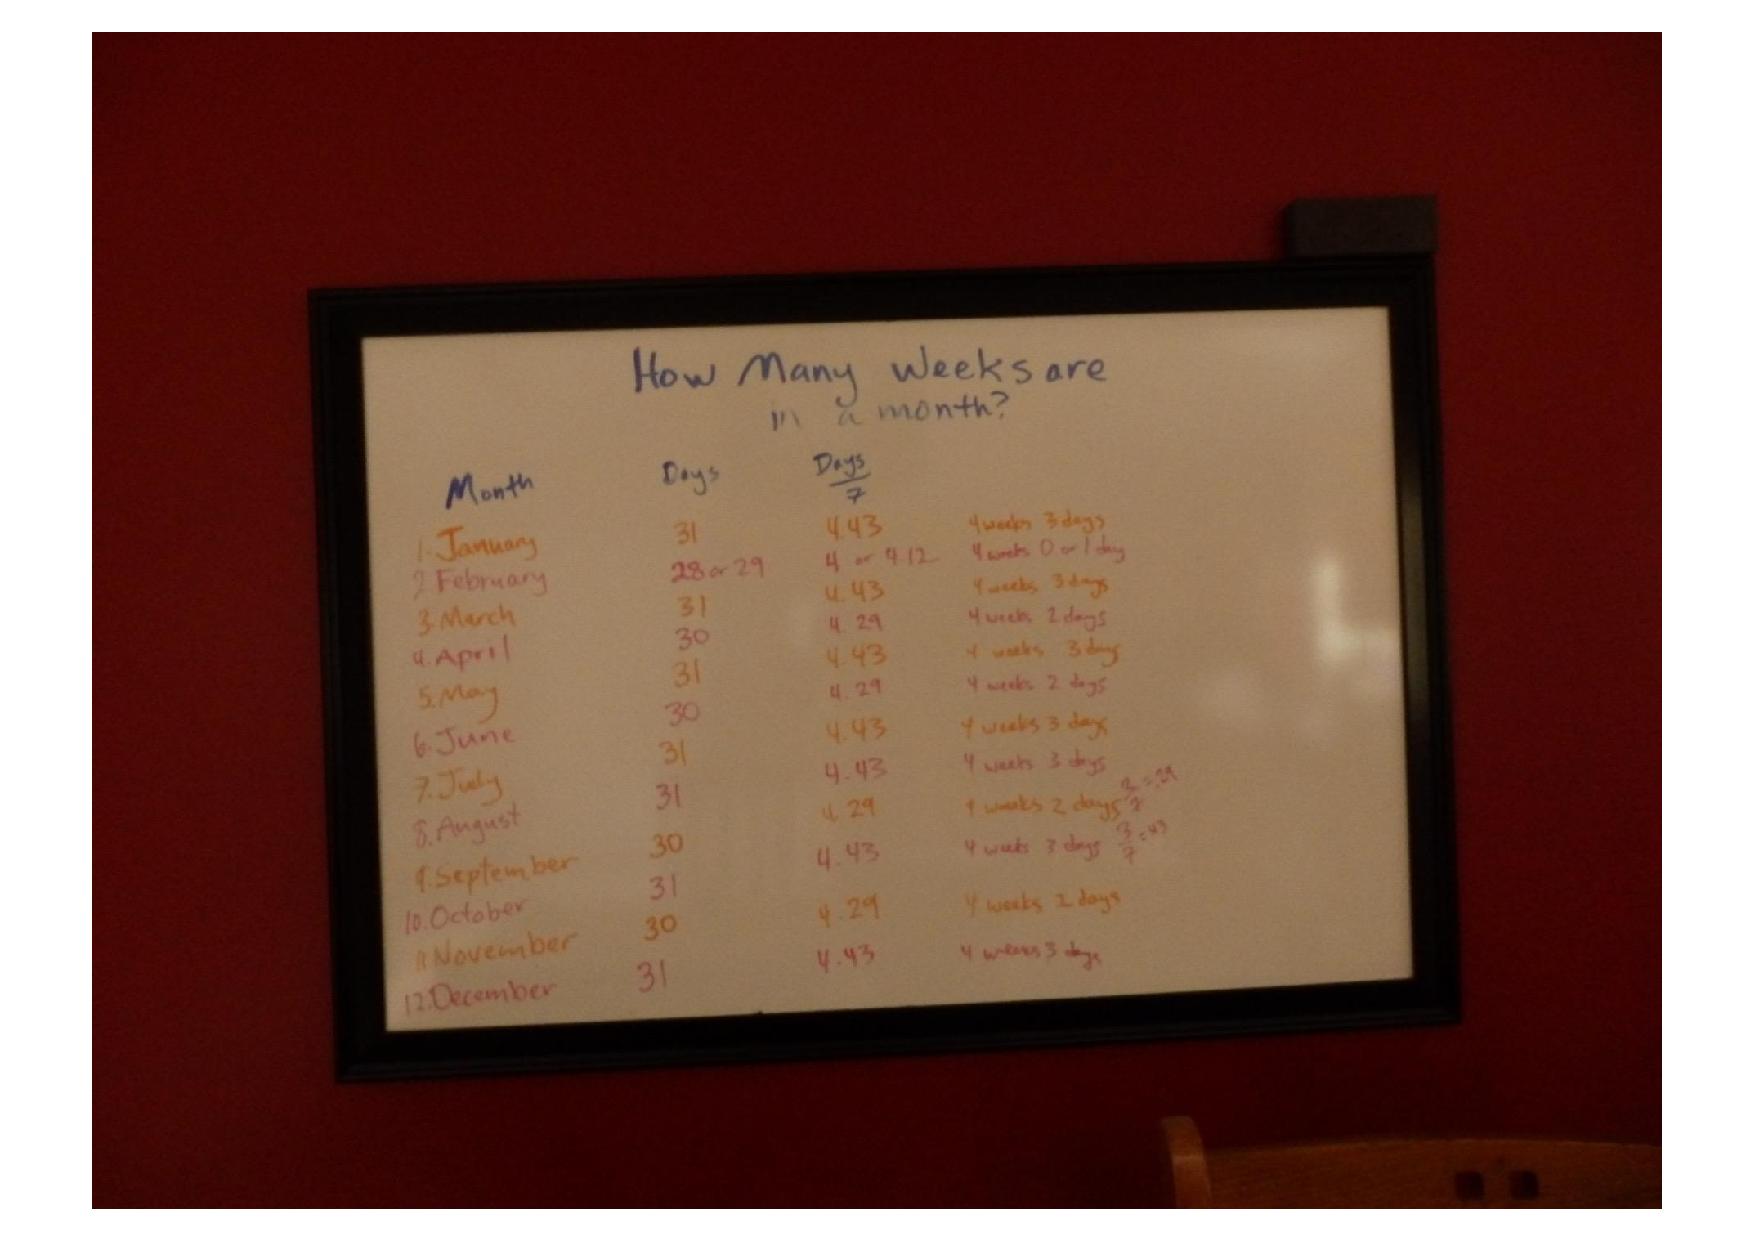 How Many Weeks are
in a month?
Month Days Days/7
1. January 31 4.43 4 weeks 3 days
2. February 28 or 29 4 or 4.12 4 weeks 0 or 1 day
3. March 31 4.43 4 weeks 3 days
4. April 30 4.29 4 weeks 2 days
5. May 31 4.43 4 weeks 3 days
6. June 30 4.29 4 weeks 2 days
7. July 31 4.43 4 weeks 3 days
8. August 31 4.43 4 weeks 3 days
9. September 30 4.29 4 weeks 2 days
10. October 31 4.43 4 weeks 3 days 3/7=.43
11. November 30 4.29 4 weeks 2 days
12. December 31 4.43 4 weeks 3 days